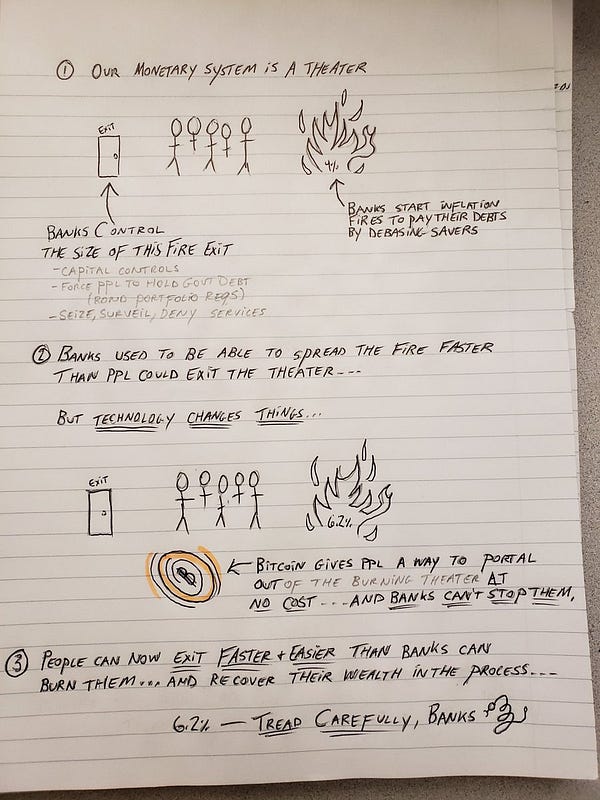 ① OUR MONETARY SYSTEM IS A THEATER
EXIT
4%
BANKS CONTROL
THE SIZE OF THIS FIRE EXIT
- CAPITAL CONTROLS
- FORCE PPL TO HOLD GOVT DEBT
(BOND PORTFOLIO REQS)
- SEIZE, SURVEIL, DENY SERVICES
BANKS START INFLATION
FIRES TO PAY THEIR DEBTS
BY DEBASING SAVERS
② BANKS USED TO BE ABLE TO SPREAD THE FIRE FASTER
THAN PPL COULD EXIT THE THEATER---
BUT TECHNOLOGY CHANGES THINGS...
EXIT
6.2%
B
BITCOIN GIVES PPL A WAY TO PORTAL
OUT OF THE BURNING THEATER AT
NO COST ---- AND BANKS CAN'T STOP THEM.
③ PEOPLE CAN NOW EXIT FASTER + EASIER THAN BANKS CAN
BURN THEM... AND RECOVER THEIR WEALTH IN THE PROCESS---
6.2% — TREAD CAREFULLY, BANKS